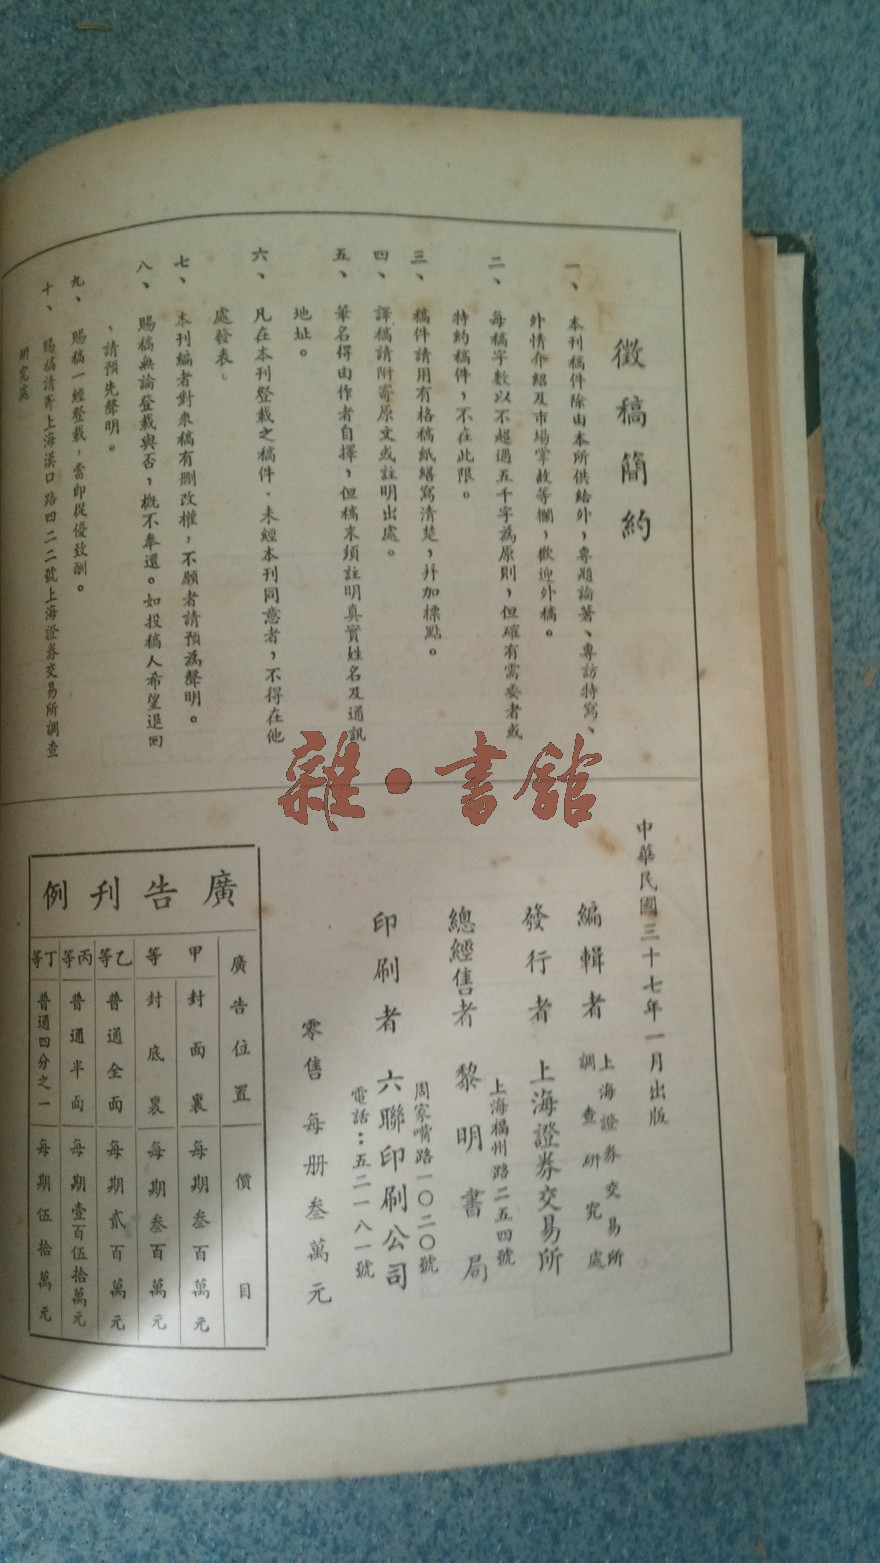 徵稿簡約
一、本刊稿件除由本所供給外，專題論著、專訪特寫、
外情介紹及市場掌故等欄，歡迎外稿。
二、每稿字數以不超過五千字爲原則，但確有需要者或
特約稿件，不在此限。
三、稿件請用有格稿紙繕寫清楚，幷加標點。
四、譯稿請附寄原文或註明出處。
五、筆名得由作者自擇，但稿末須註明真實姓名及通訊
地址。
六、凡在本刊登載之稿件、未經本刊同意者，不得在他
處發表。
七、本刊編者對來稿有刪改權，不願者請預爲聲明。
八、賜稿無論登載與否，概不奉還。如投稿人希望退回
，請預先聲明。
九、賜稿一經登載，當即從優致酬。
十、賜稿請寄上海漢口路四二二號上海證券交易所調查
研究處
中華民國三十七年一月出版
編輯者 上海證券交易所
調查研究處
發行者 上海證券交易所
上海福州路二五四號
總經售者 黎明書局
周家嘴路一〇二〇號
印刷者 六聯印刷公司
電話：五二一八一號
零售 每册叁萬元
廣告刊例
廣告位置 價目
甲等 封面裏 每期叁百萬元
封底裏 每期叁百萬元
乙等 普通全面 每期貳百萬元
丙等 普通半面 每期壹百伍拾萬元
丁等 普通四分之一 每期伍拾萬元
雜·書館